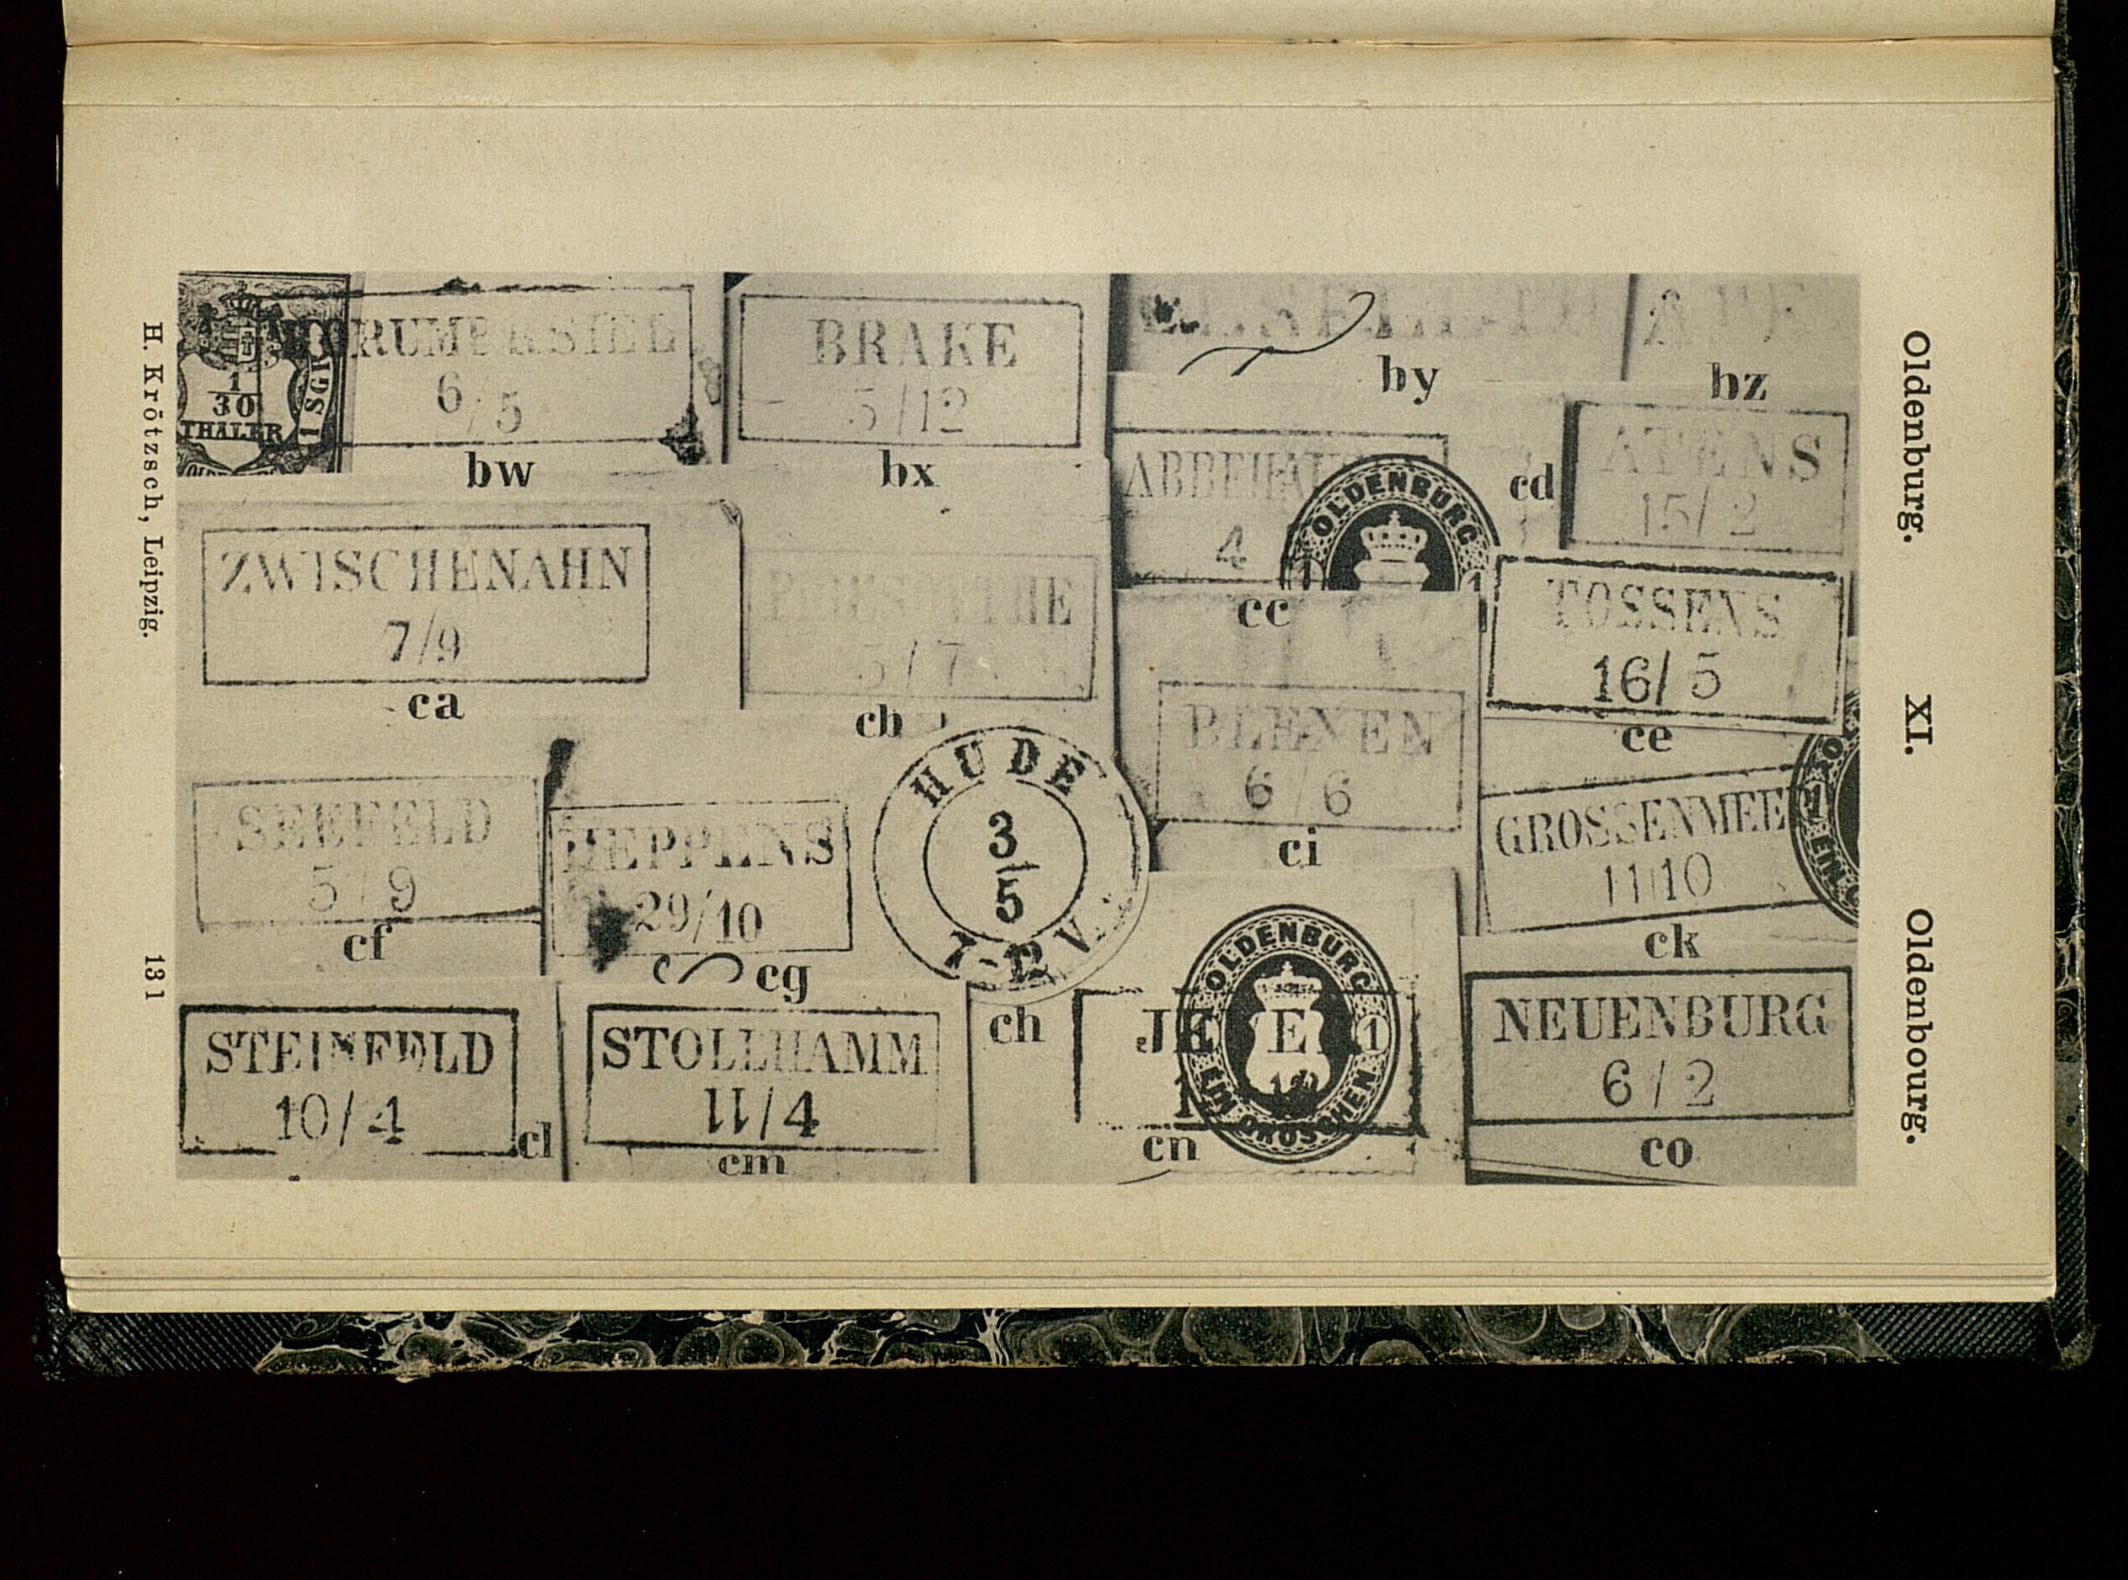 Oldenburg. XI. Oldenbourg.
1/30
THALER
1 SGR
6/5
bw
BRAKE
5/12
bx
by
bz
ABBEHAU
4
OLDENBURG
1 1
cc
cd
ATENS
15/2
ZWISCHENAHN
7/9
ca
5/7
cb
TOSSENS
16/5
ce
BLEXEN
6/6
ci
SEEFELD
5/9
cf
HEPPENS
29/10
cg
HUDE
3/5
ch
GROSSENMEE
11/10
1
EIN
ck
STEINFELD
10/4
cl
STOLLHAMM
11/4
cm
JE E
OLDENBURG
1
EIN GROSCHEN
cn
NEUENBURG
6/2
co
H. Krötzsch, Leipzig.
131